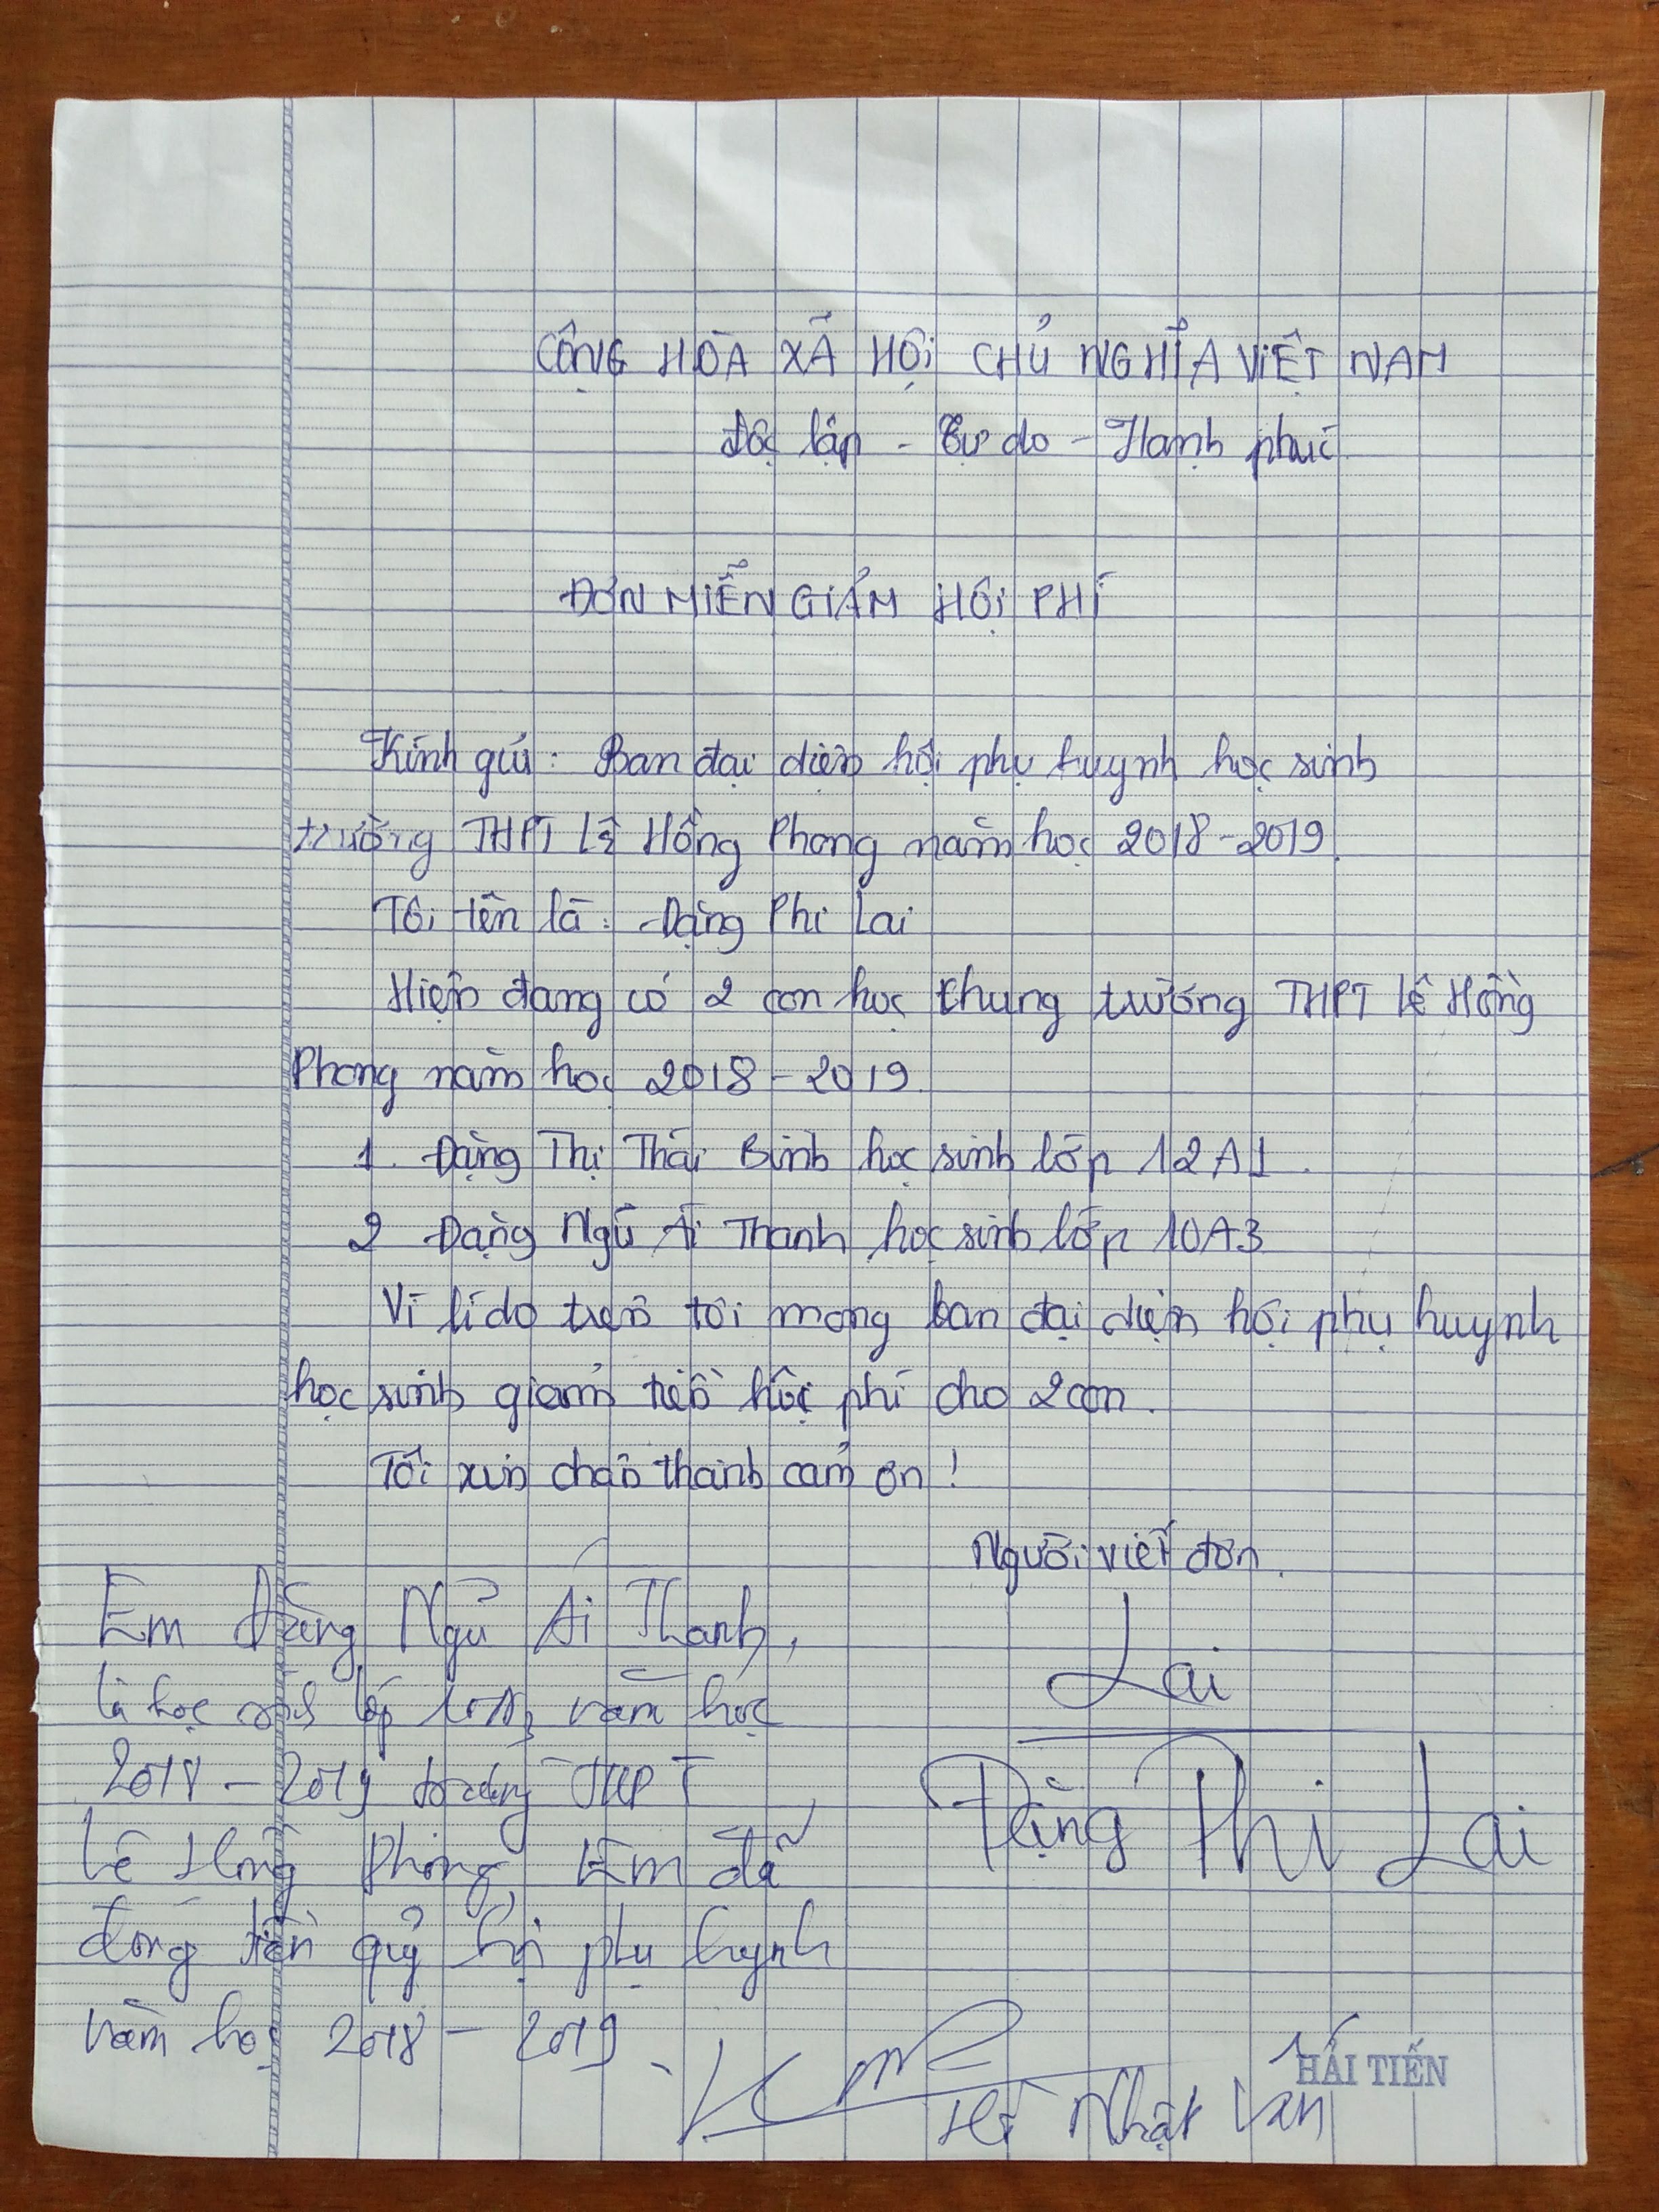 CỘNG HÒA XÃ HỘI CHỦ NGHĨA VIỆT NAM
Độc lập - Tự do - Hạnh phúc
ĐƠN MIỄN GIẢM HỘI PHÍ
Kính gửi: Ban đại diện hội phụ huynh học sinh
trường THPT Lê Hồng Phong năm học 2018-2019.
Tôi tên là: Đặng Phi Lai
Hiện đang có 2 con học chung trường THPT Lê Hồng
Phong năm học 2018-2019.
1. Đặng Thị Thái Bình học sinh lớp 12A1.
2 Đặng Ngũ Ái Thanh học sinh lớp 10A3
Vì lí do trên tôi mong ban đại diện hội phụ huynh
học sinh giảm tiền học phí cho 2 con.
Tôi xin chân thành cảm ơn!
Người viết đơn.
Lai
Đặng Phi Lai
Em Đặng Ngũ Ái Thanh,
là học sinh lớp 10A3 năm học
2018 - 2019 trường THPT
Lê Hồng Phong Em đã
đóng tiền quỹ hội phụ huynh
năm học 2018 - 2019.
Nhật Văn
HẢI TIẾN